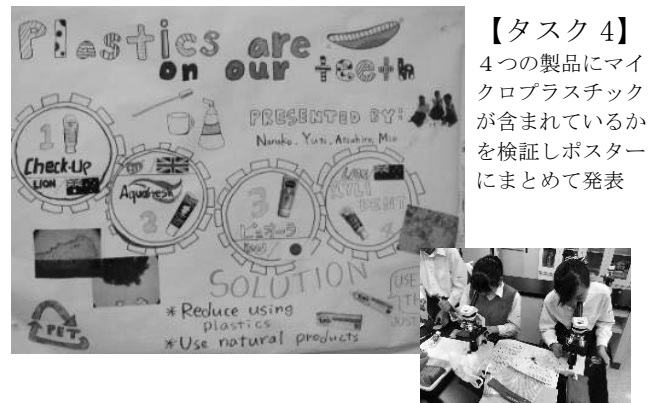 Plastics are
on our teeth
PRESENTED BY:
1
Check-Up
LION
Aquafresh
2
3
ピュオーラ
4
SOLUTION
* Reduce using
plastics
* Use natural products
PET
USE
【タスク 4】
４つの製品にマイ
クロプラスチック
が含まれているか
を検証しポスター
にまとめて発表